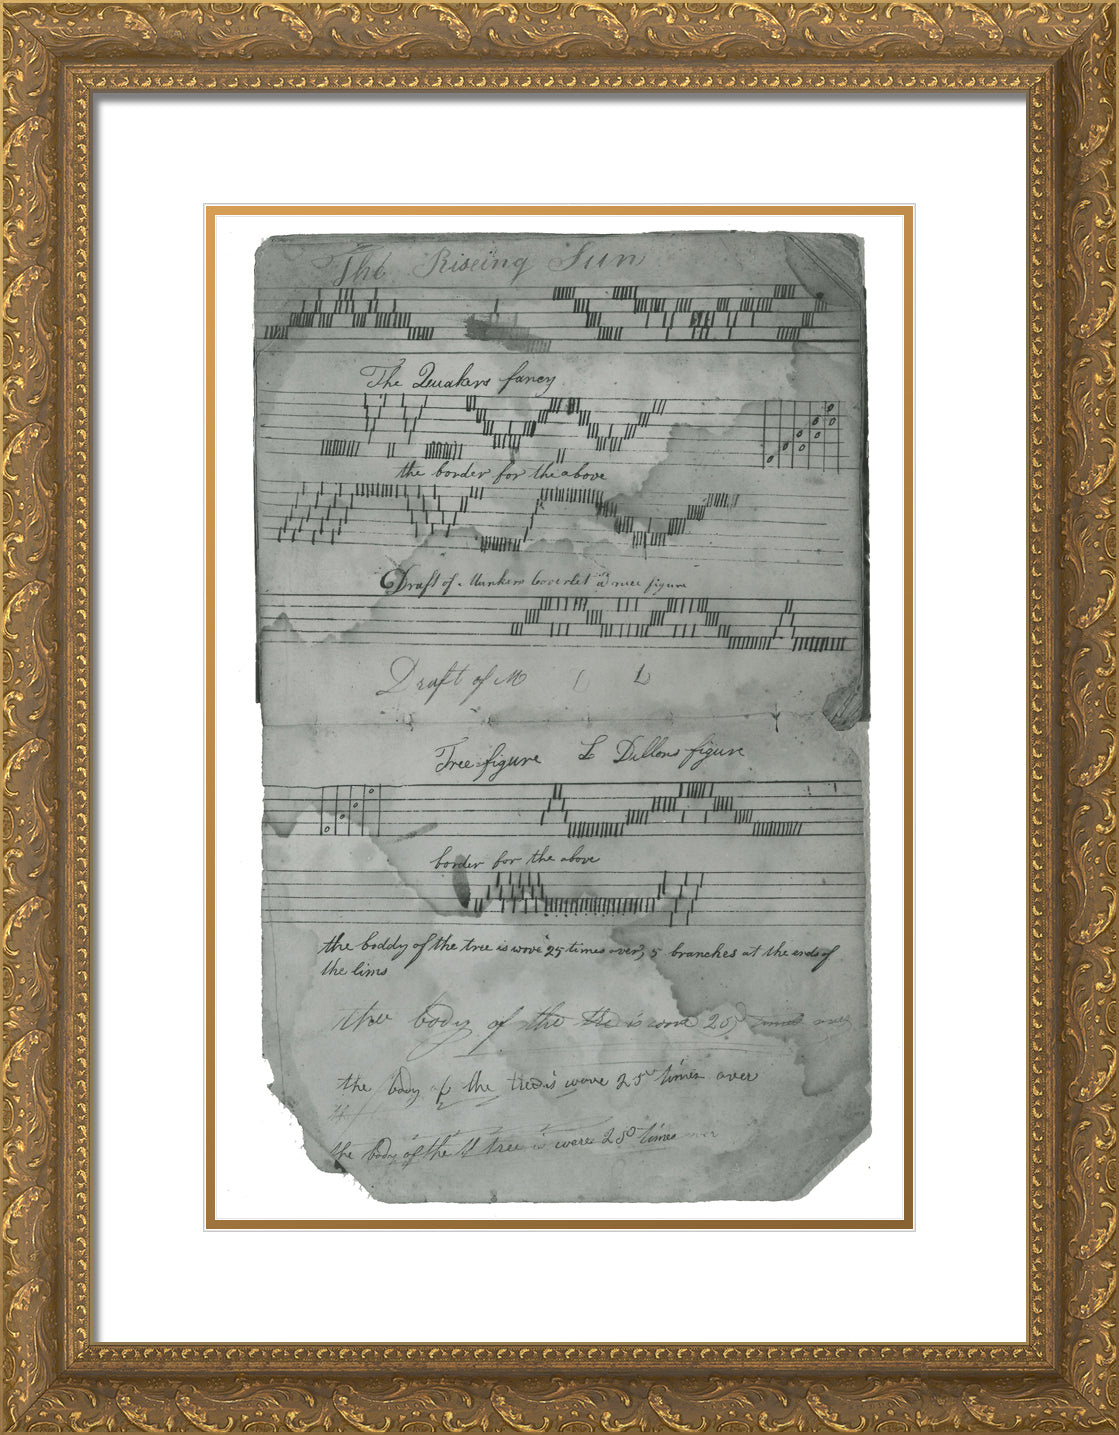 The Riseing Sun
The Quakers fancy
the border for the above
Draft of a coverlet a nice figure
Draft of M L
Tree figure L Dillons figure
border for the above
the boddy of the tree is wove 25 times over, 5 branches at the ends of
the lims
the body of the is wove 25 times over
the body of the tree is wove 25 times over
the body of the tree is wove 25 times